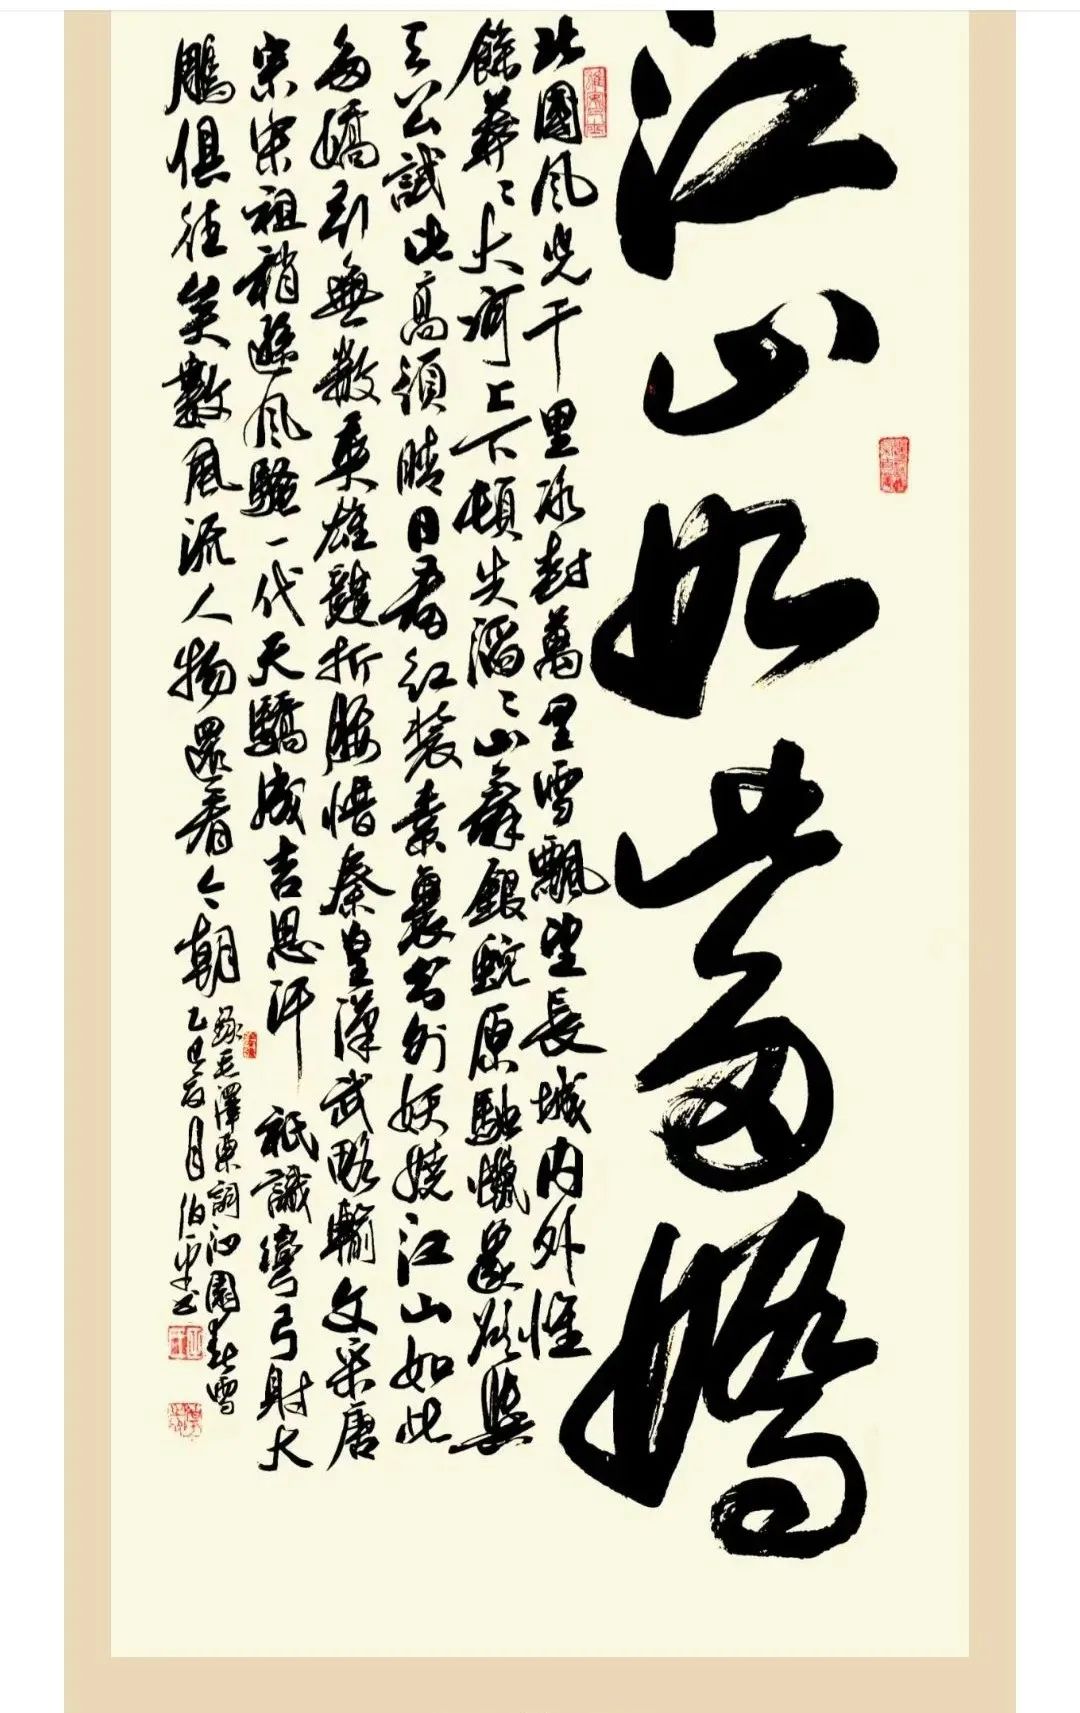 江山如此多嬌
北國风光千里冰封萬里雪飄望長城内外惟
餘莽〻大河上下頓失滔〻山舞銀蛇原馳蠟象欲與
天公試比高須晴日看紅裝素裹分外妖嬈江山如此
多嬌引無數英雄競折腰惜秦皇漢武略輸文采唐
宗宋祖稍遜风騷一代天驕成吉思汗 祇識彎弓射大
鵰俱往矣數风流人物還看今朝
錄毛澤東詞沁園春雪
乙巳夏月伯平书